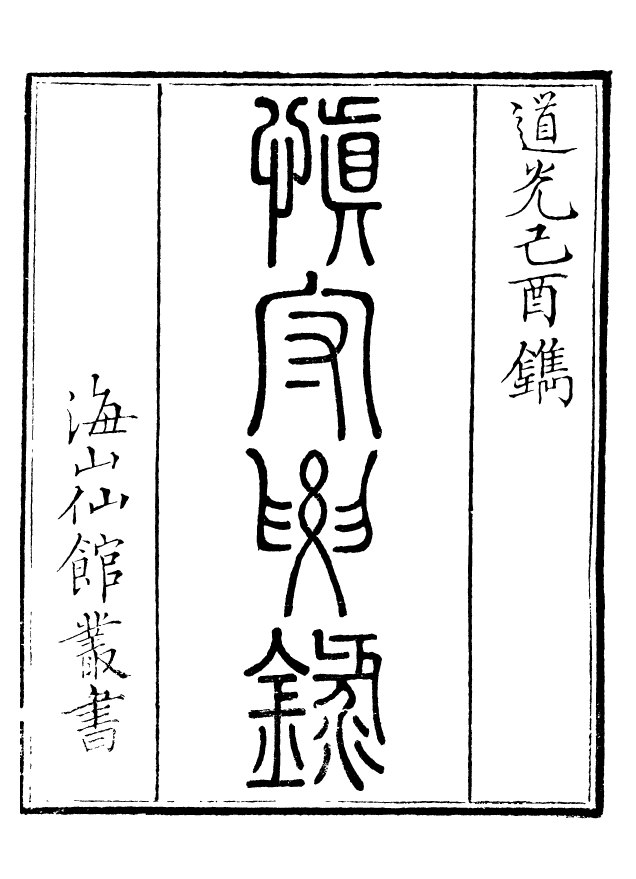 道光己酉鐫
慎守要錄
海山仙館叢書